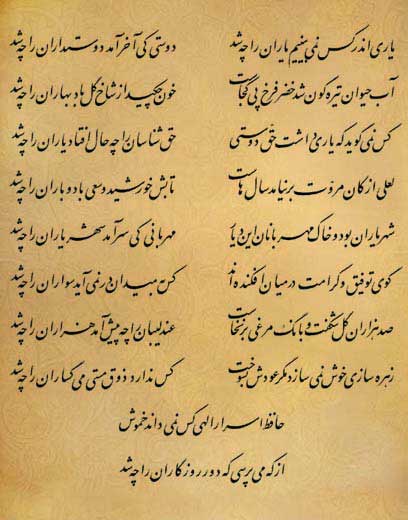 یاری اندر کس نمی بینیم یاران را چه شد دوستی کی آخر آمد دوستداران را چه شد
آب حیوان تیره گون شد خضر فرخ پی کجاست خون چکید از شاخ گل باد بهاران را چه شد
کس نمی گوید که یاری داشت حق دوستی حق شناسان را چه حال افتاد یاران را چه شد
لعلی از کان مروت برنیامد سال هاست تابش خورشید و سعی باد و باران را چه شد
شهر یاران بود و خاک مهربانان این دیار مهربانی کی سر آمد شهر یاران را چه شد
گوی توفیق و کرامت در میان افکنده اند کس به میدان در نمی آید سواران را چه شد
صد هزاران گل شکفت و بانگ مرغی برنخاست عندلیبان را چه پیش آمد هزاران را چه شد
زهره سازی خوش نمی سازد مگر عودش بسوخت کس ندارد ذوق مستی می گساران را چه شد
حافظ اسرار الهی کس نمی داند خموش
از که می پرسی که دور روزگاران را چه شد